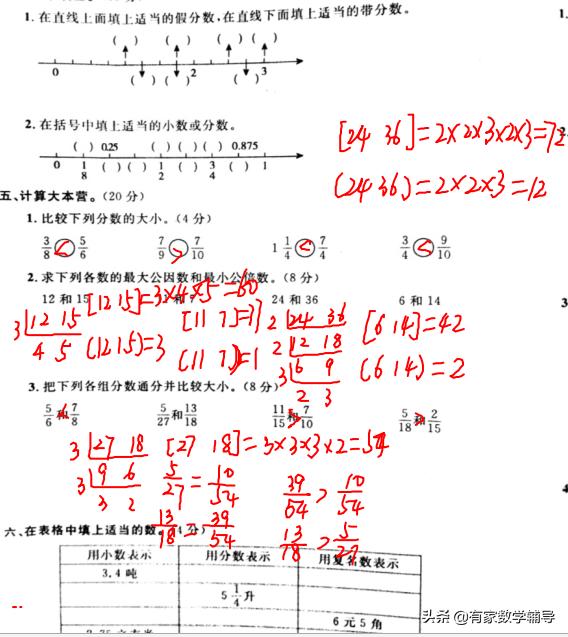 1.在直线上面填上适当的假分数,在直线下面填上适当的带分数。
( ) ( ) ( ) ( )
0 ( ) ( ) 2 ( ) 3
2.在括号中填上适当的小数或分数。
( ) 0.25 ( ) ( ) ( ) 0.875
0 1/8 ( ) ( ) 1/2 ( ) 3/4 ( ) 1
[24 36]=2×2×3×2×3=72
(24 36)=2×2×3=12
五、计算大本营。(20分)
1.比较下列分数的大小。(4分)
3/8 < 5/6 7/9 > 7/10 1 1/4 < 7/4 3/4 < 9/10
2.求下列各数的最大公因数和最小公倍数。(8分)
12和15 24和36 6和14
[12 15]=3×4×5=60
3 12 15
4 5
(12 15)=3
(11 7)=1
2 24 36
2 12 18
3 6 9
2 3
[6 14]=42
(6 14)=2
3.把下列各组分数通分并比较大小。(8分)
5/6和7/8 5/27和13/18 11/15和7/10 5/18和2/15
3 27 18
3 9 6
3 2
[27 18]=3×3×3×2=54
5/27=10/54
13/18=39/54
39/54>10/54
13/18>5/27
六、在表格中填上适当的数。(4分)
用小数表示 用分数表示 用复名数表示
3.4吨
5 1/4升
6元5角
头条@有家数学辅导